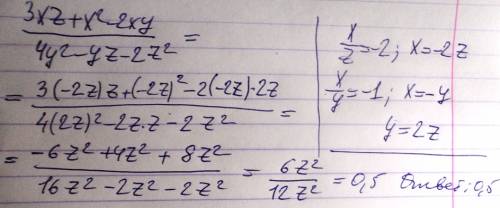 (3xz+x²-2xy)/(4y²-yz-2z²) =
= (3(-2z)z+(-2z)²-2(-2z)·2z)/(4(2z)²-2z·z-2z²) =
= (-6z²+4z²+8z²)/(16z²-2z²-2z²) = 6z²/12z² = 0,5 Ответ: 0,5
x/z=-2; x=-2z
x/y=-1; x=-y
y=2z